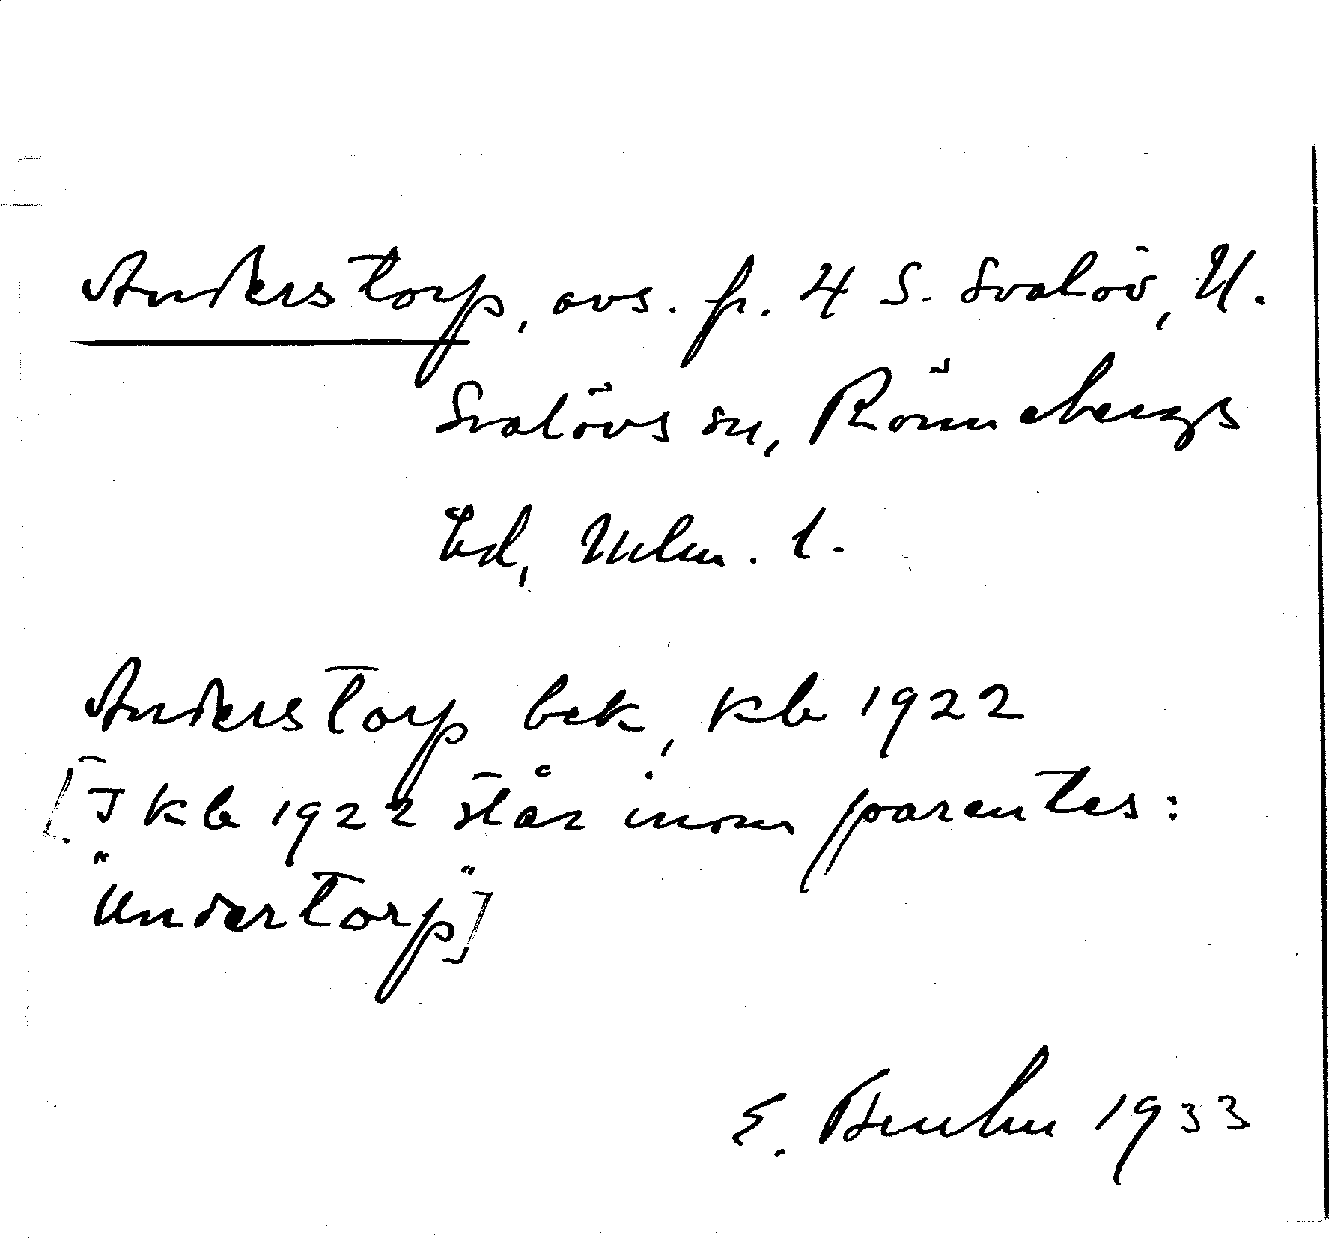 Anderstorp, avs. fr. 4 S. Svalöv,
Svalövs sn, Rönnebergs
hd, l.
Anderstorp bek, kb 1922
[I kb 1922 står inom parentes:
"Undertorp"]
E. 1933